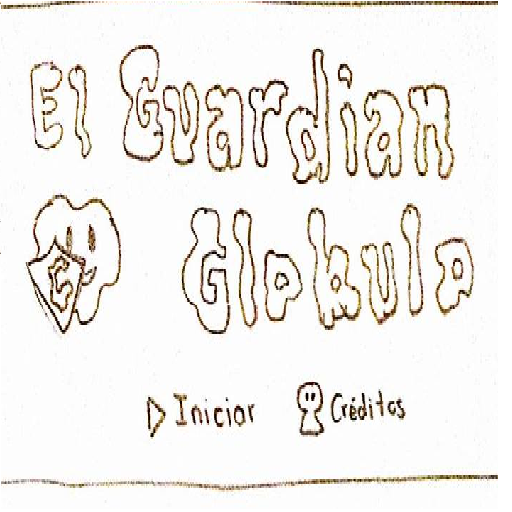 El Guardian
Glokulo
G
Iniciar Créditos